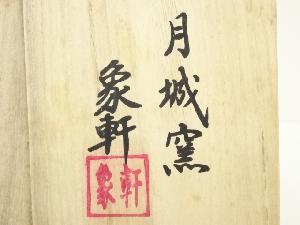 月城窯
象軒
象軒